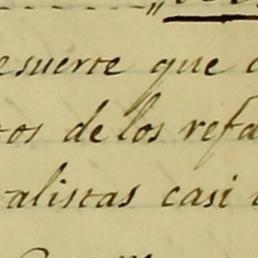 esuerte que
tos de los refa
alistas casi